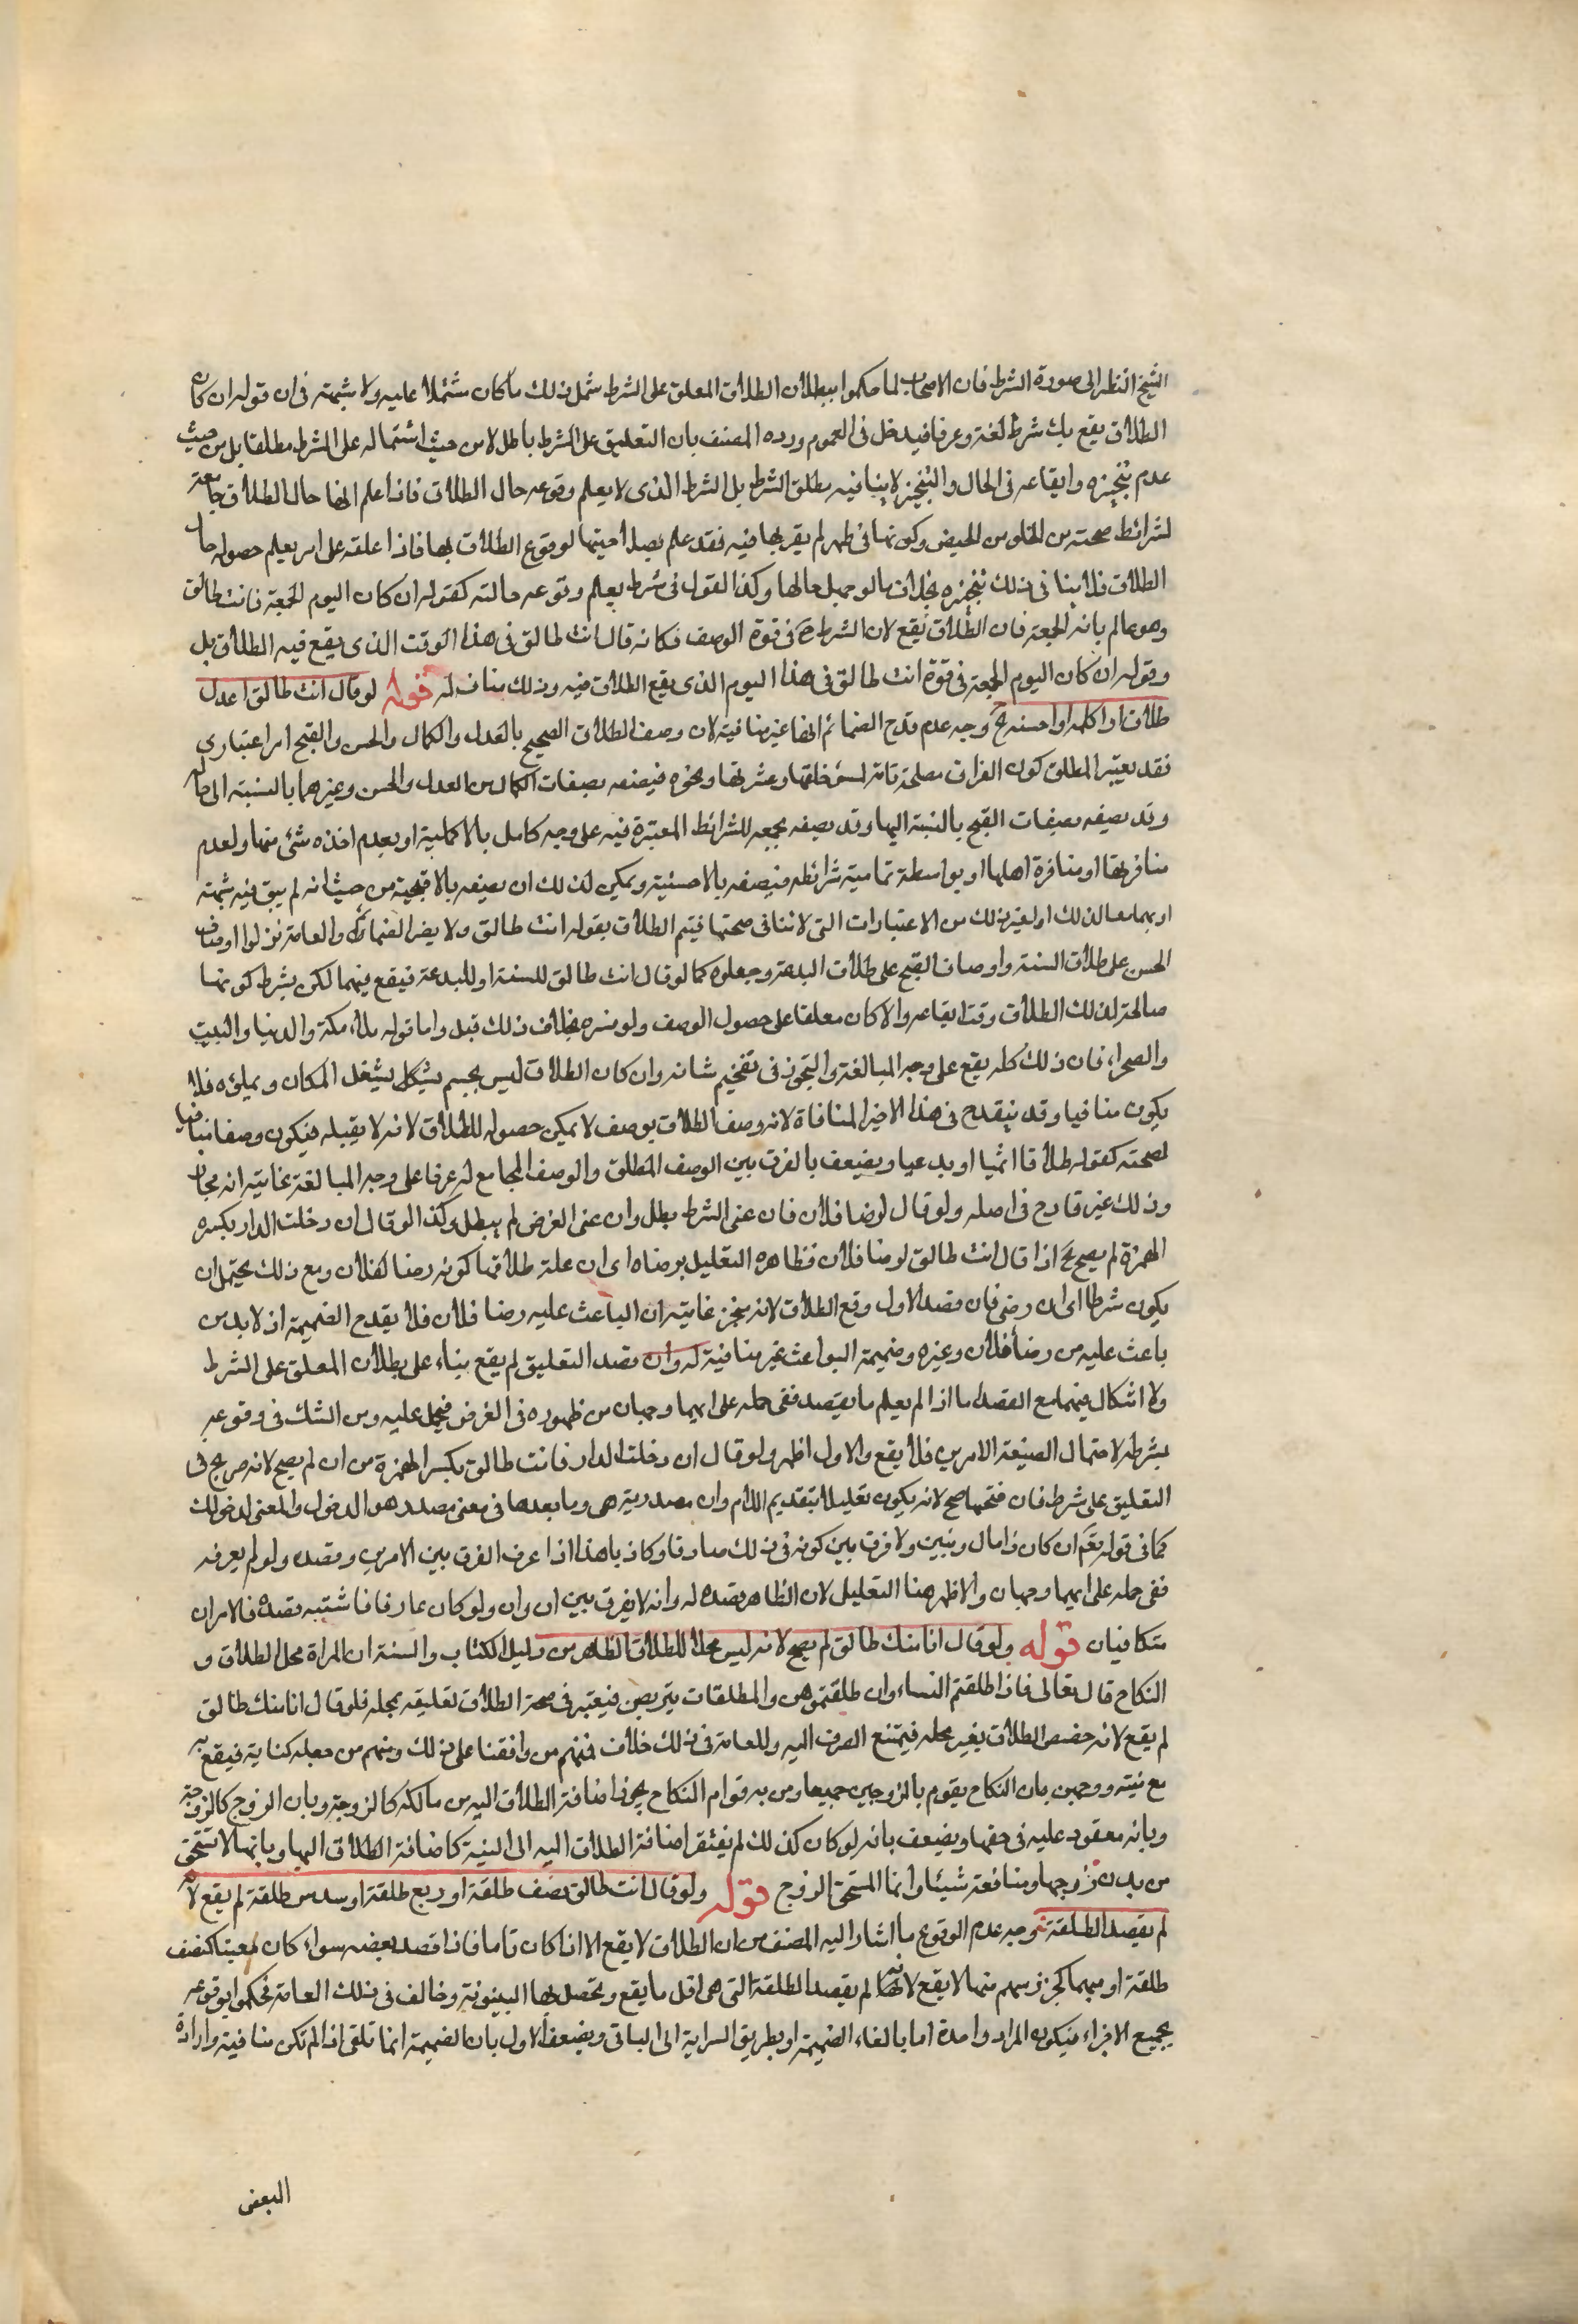 الشيخ النظر الى صورة الشرط فان الاصحاب لما حكموا ببطلان الطلاق المعلق على الشرط شمل ذلك ما كان مشتملا عليه ولا شبهة فى ان قوله ان كان
الطلاق يقع بك شرط لغة وعرفا فيدخل فى العموم ورده المصنف بان التعليق على الشرط باطل لا من حيث اشتماله على الشرط مطلقا بل من حيث
عدم تنجيزه وايقاعه فى الحال والتنجيز لا ينافيه مطلق الشرط بل الشرط الذى لا يعلم وقوعه حال الطلاق فاذا علم انها حال الطلاق جامعة
لشرائط صحته من الخلو من الحيض وكونها فى طهر لم يقربها فيه فقد علم بصلاحيتها لوقوع الطلاق بها فاذا علقه على امر يعلم حصوله حال
الطلاق فلا ينافى ذلك تنجيزه بخلاف ما لو جهل حالها وكذا القول فى شرط يعلم وقوعه حالته كقوله ان كان اليوم الجمعة فانت طالق
وهو عالم بانه الجمعة فان الطلاق يقع لان الشرط ح فى قوة الوصف فكانه قال انت طالق فى هذا الوقت الذى يقع فيه الطلاق بل
وقوله ان كان اليوم الجمعة فى قوة انت طالق فى هذا اليوم الذى يقع الطلاق فيه وذلك مناف له قوله لو قال انت طالق اعدل
طلاق او اكمله او احسنه الخ وجه عدم قدح الضمائم انها غير منافية لان وصف الطلاق الصحيح بالعدل والكمال والحسن والقبح امر اعتبارى
فقد يعتبر المطلق كون الفراق مصلحة تامة لسوء خلقها وعشرتها ونحوه فيصفه بصفات الكمال من العدل والحسن وغيرهما بالنسبة الى حاله
وقد يصفه بصفات القبح بالنسبة اليها وقد يصفه بجمعه للشرائط المعتبرة فيه على وجه كامل بالاكملية او بعدم اخذه شئ منها ولعدم
منافرتها او منافرة اهلها او بواسطة تمامية شرائطه فيصفه بالاحسنية ويمكن لذلك ان يصفه بالاقبحية من حيث انه لم يبق فيه شبهة
او بهما معا لذلك او لغير ذلك من الاعتبارات التى لا تنافى صحتها فيتم الطلاق بقوله انت طالق ولا يضر الضمائم والعامة نزلوا اوصاف
الحسن على طلاق السنة واوصاف القبح على طلاق البدعة وجعلوه كما لو قال انت طالق للسنة او للبدعة فيقع فيهما لكن بشرط كونها
صالحة لذلك الطلاق وقت ايقاعه والا كان معلقا على حصول الوصف ولو فسره بخلاف ذلك قبل واما قوله ملاء مكة والدنيا والبيت
والصحراء فان ذلك كله يقع على وجه المبالغة والتجوز فى تفخيم شانه وان كان الطلاق ليس بجسم يشكل يشغل المكان ويملؤه فلا
يكون منافيا وقد ينقدح فى هذا الاخير المنافاة لانه وصف الطلاق بوصف لا يمكن حصوله للطلاق لانه لا يقبله فيكون وصفا منافيا
لصحته كقوله طلاقا اثميا او بدعيا ويضعف بالفرق بين الوصف المطلق والوصف المجامع له عرفا على وجه المبالغة غايته انه مجاز
وذلك غير قادح فى اصله ولو قال لرضا فلان فان عنى الشرط بطل وان عنى الغرض لم يبطل وكذا لو قال ان دخلت الدار بكسر
الهمزة لم يصح الخ اذا قال انت طالق لرضا فلان فظاهره التعليل برضاه اى ان علة طلاقها كونه رضا لفلان ومع ذلك يحتمل ان
يكون شرطا اى ان رضى فان قصد الاول وقع الطلاق لانه منجز غايته ان الباعث عليه رضا فلان فلا يقدح الضميمة اذ لا بد من
باعث عليه من رضا فلان وغيره وضميمة البواعث غير منافية له وان قصد التعليق لم يقع بناء على بطلان المعلق على الشرط
ولا اشكال فيهما مع القصد اما اذا لم يعلم ما يقصد ففى حمله على ايهما وجهان من ظهوره فى الغرض فيحمل عليه ومن الشك فى وقوعه
بشرطه لاحتمال الصيغة الامرين فلا يقع والاول اظهر ولو قال ان دخلت الدار فانت طالق بكسر الهمزة من ان لم يصح لانه صريح فى
التعليق على شرط فان فتحها صح لانه يكون تعليلا بتقديم اللام وان مصدرية هى وما بعدها فى معنى مصدر هو الدخول والمعنى لدخولك
كما فى قوله تعم ان كان ذا مال وبنين ولا فرق بين كونه فى ذلك صادقا وكاذبا هذا اذا عرف الفرق بين الامرين وقصده ولو لم يعرفه
ففى حمله على ايهما وجهان والاظهر هنا التعليل لان الظاهر قصده له وانه لا يفرق بين ان وان ولو كان عارفا فاشتبه قصده فالامران
متكافيان قوله ولو قال انا منك طالق لم يصح لانه ليس محلا للطلاق الظاهر من دليل الكتاب والسنة ان المراة محل الطلاق و
النكاح قال تعالى فاذا طلقتم النساء وان طلقتموهن والمطلقات يتربصن فيعتبر فى صحة الطلاق تعليقه بمحله فلو قال انا منك طالق
لم يقع لانه خصص الطلاق بغير محله فيمتنع الصرف اليه وللعامة فى ذلك خلاف فمنهم من وافقنا على ذلك ومنهم من جعله كناية فيقع به
مع نيته ووجهين بان النكاح يقوم بالزوجين جميعا ومن به قوام النكاح يجوز اضافة الطلاق اليه من مالكه كالزوجة وبان الزوج كالزوجة
وبانه معقود عليه فى حقها ويضعف بانه لو كان كذلك لم يفتقر اضافة الطلاق اليه الى النية كاضافة الطلاق اليها وبانها لا تستحق
من بدن زوجها ومنافعه شيئا وانما المستحق الزوج قوله ولو قال انت طالق نصف طلقة او ربع طلقة او سدس طلقة لم يقع لانه
لم يقصد الطلقة وجه عدم الوقوع ما اشار اليه المصنف من ان الطلاق لا يقع الا اذا كان تاما فاذا قصد بعضه سواء كان معينا كنصف
طلقة او مبهما كجزء وسهم منها لا يقع لانه لم يقصد الطلقة التى هى اقل ما يقع ويحصل بها البينونة وخالف فى ذلك العامة فحكموا بوقوعه
بجميع الاجزاء فيكون المراد واحدة اما بالغاء الضميمة او بطريق السراية الى الباقى ويضعف الاول بان الضميمة انما تلغى اذا لم تكن منافية وارادة
البعض